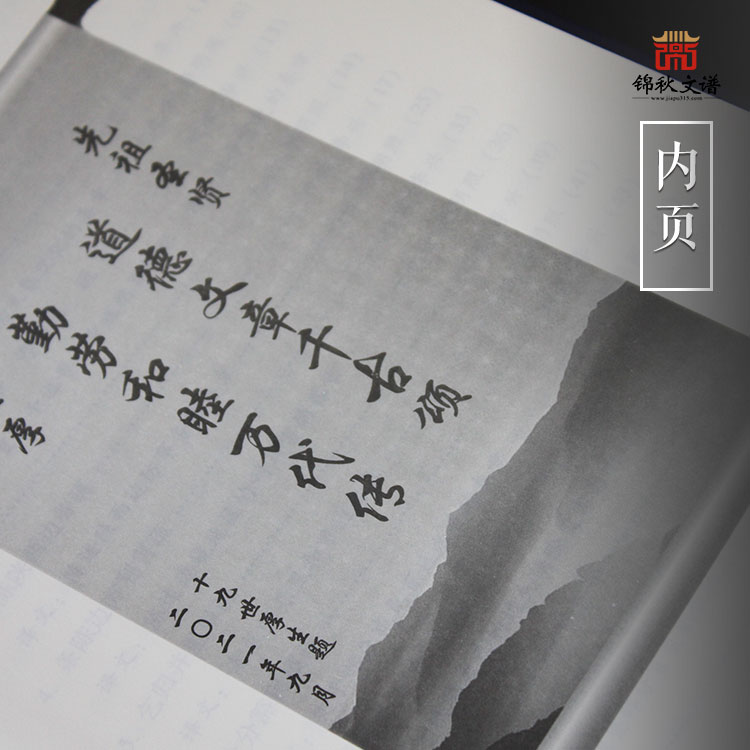 锦秋文谱
www.jiapu315.com
内页
先祖圣贤
道德文章千古颂
勤劳和睦万代传
厚
十九世厚生题
二〇二一年九月